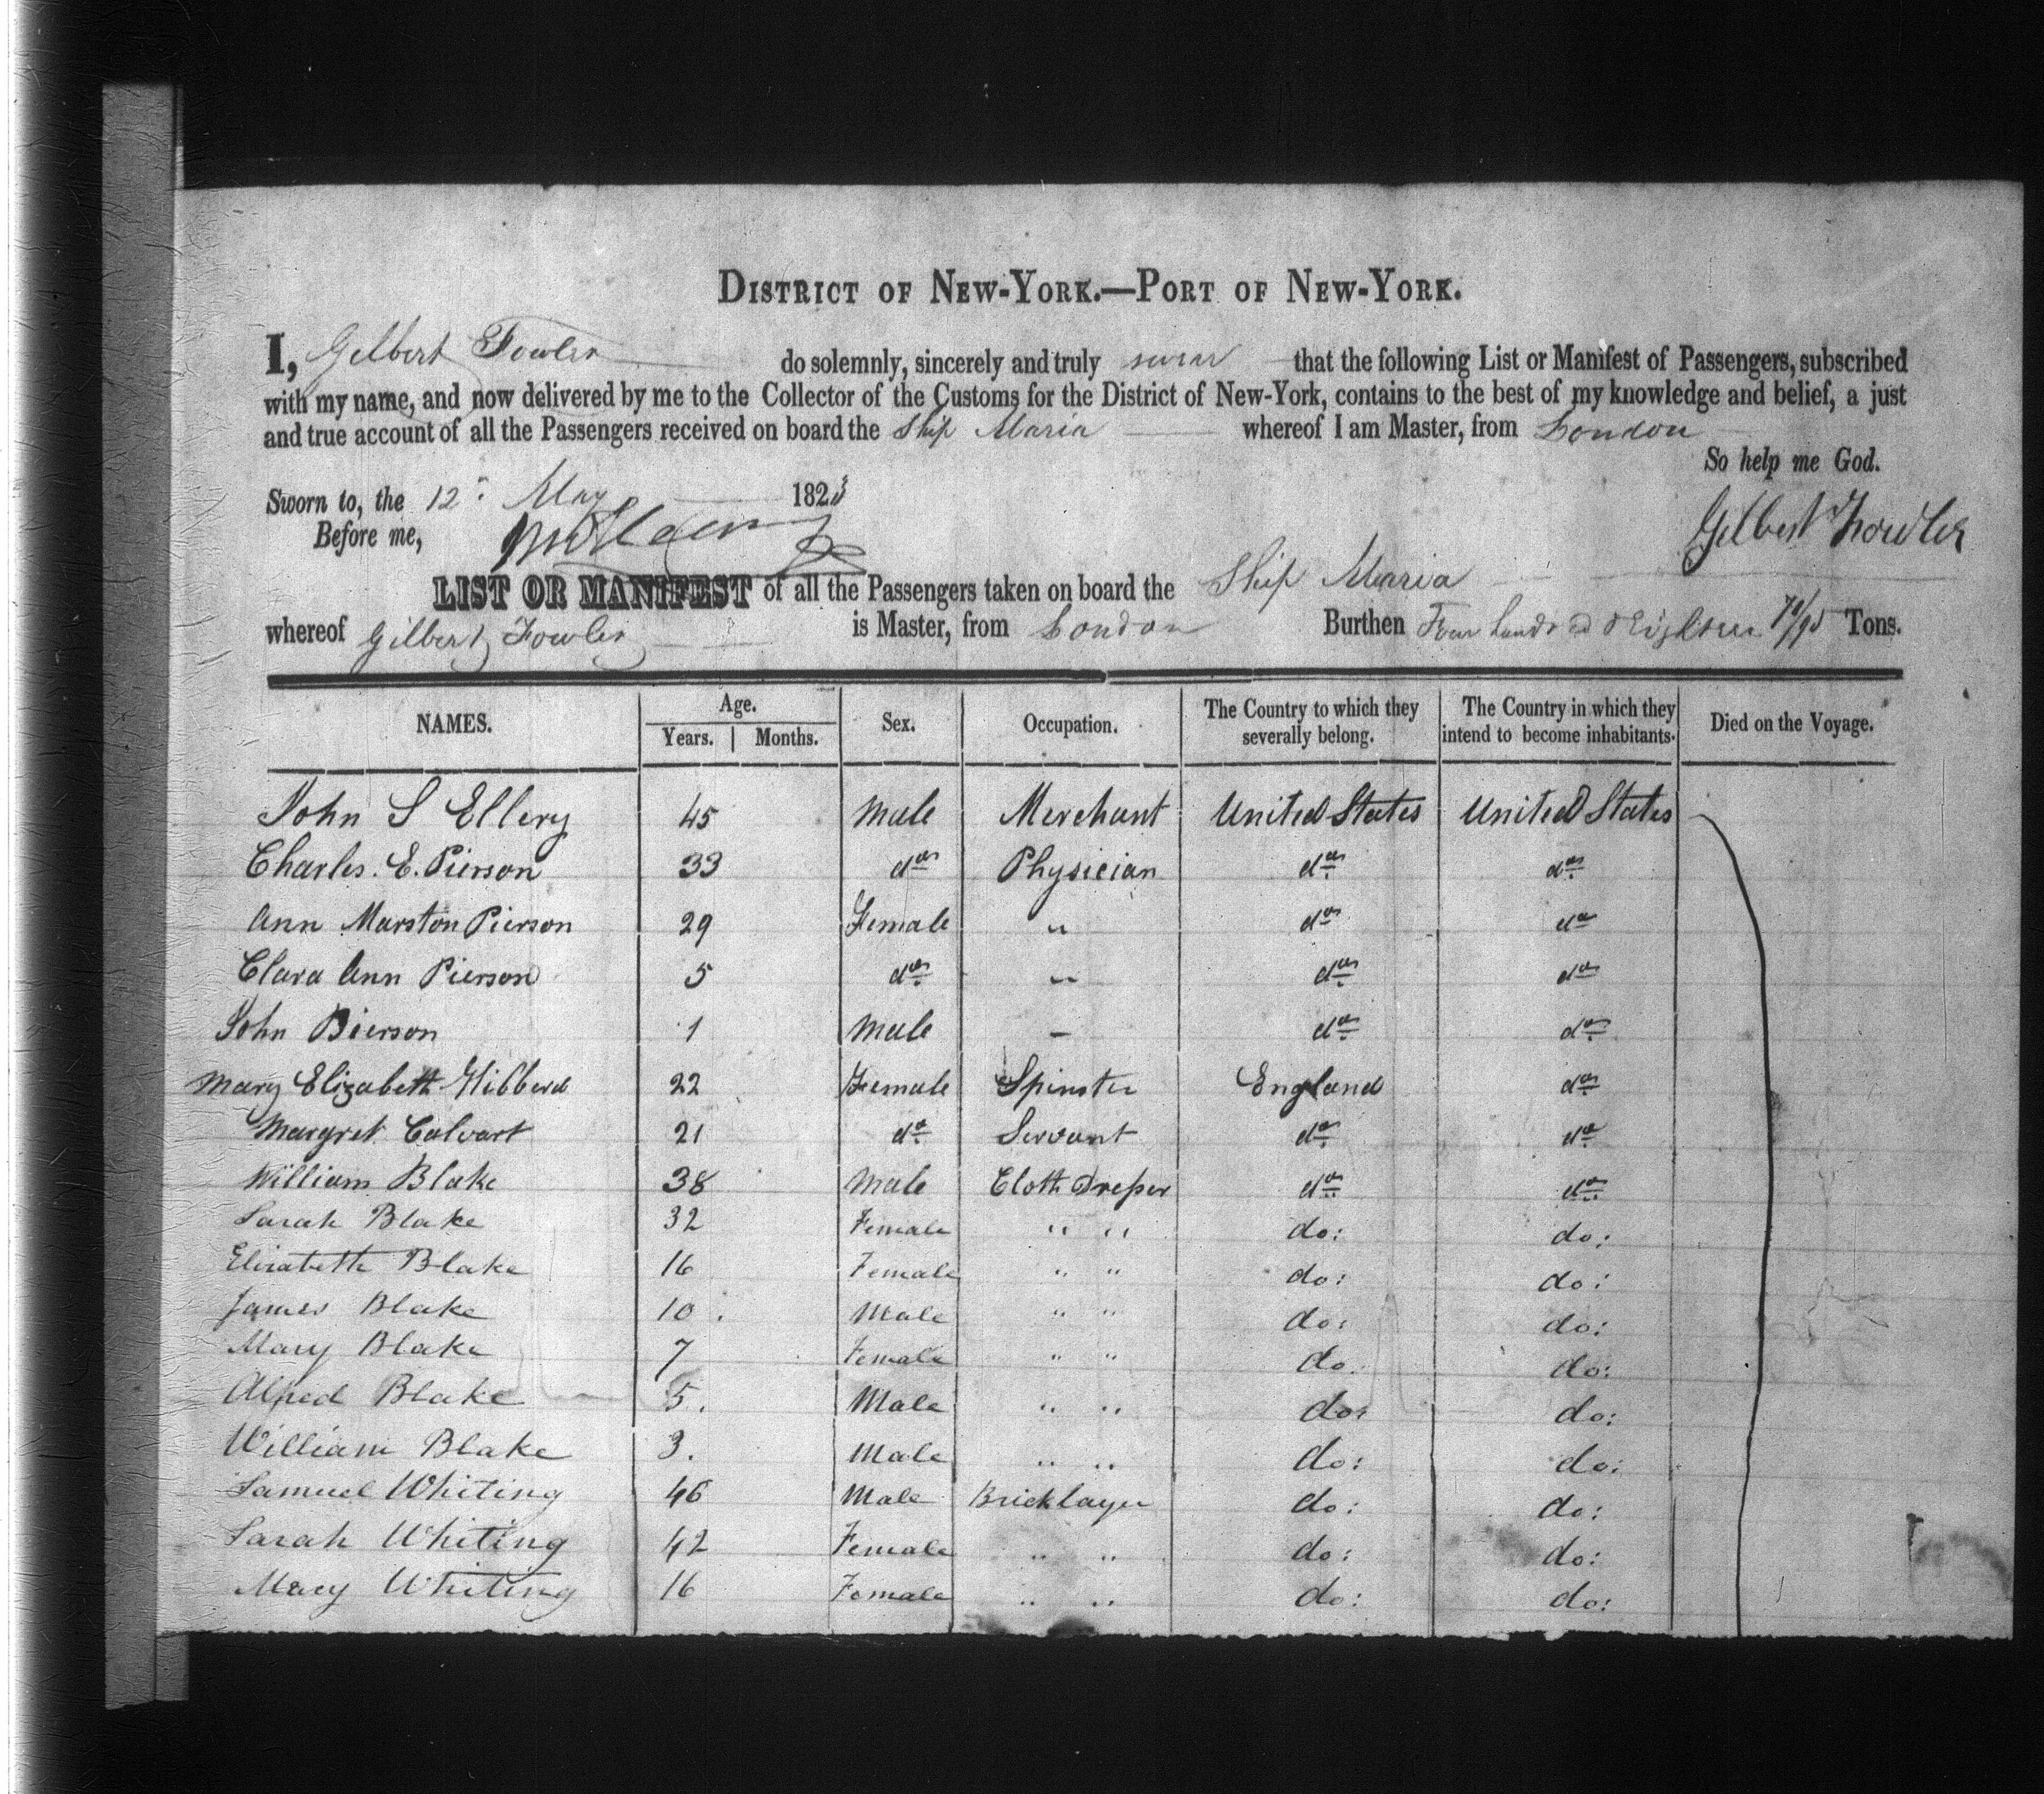 DISTRICT OF NEW-YORK.—PORT OF NEW-YORK.
I, Gilbert Fowler do solemnly, sincerely and truly swear that the following List or Manifest of Passengers, subscribed
with my name, and now delivered by me to the Collector of the Customs for the District of New-York, contains to the best of my knowledge and belief, a just
and true account of all the Passengers received on board the Ship Maria whereof I am Master, from London
So help me God.
Sworn to, the 12 May 1823
Before me,
Gilbert Fowler
LIST OR MANIFEST of all the Passengers taken on board the Ship Maria
whereof Gilbert Fowler is Master, from London Burthen Four hundred & Eighteen /95 Tons.
NAMES. Age. Years. Months. Sex. Occupation. The Country to which they severally belong. The Country in which they intend to become inhabitants. Died on the Voyage.
John S Ellery 45 Male Merchant United States United States
Charles. E. Pierson 33 do Physician do do
Ann Marston Pierson 29 Female " do do
Clara Ann Pierson 5 do " do do
John Pierson 1 Male - do do
Mary Elizabeth Hibberd 22 Female Spinster England do
Margret Calvart 21 do Servant do do
William Blake 38 Male Cloth Dreper do do
Sarah Blake 32 Female " " do: do:
Elizabeth Blake 16 Female " " do: do:
James Blake 10. Male " " do: do:
Mary Blake 7 Female " " do. do:
Alfred Blake 5. Male " " do: do:
William Blake 3. Male " " do: do:
Samuel Whiting 46 Male Bricklayer do: do:
Sarah Whiting 42 Female " " do: do:
Mary Whiting 16 Female " " do: do: